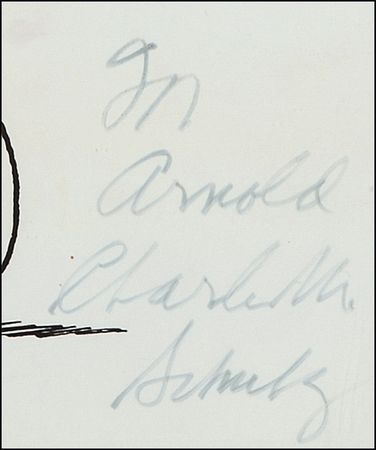 For
Arnold
Charles M.
Schulz